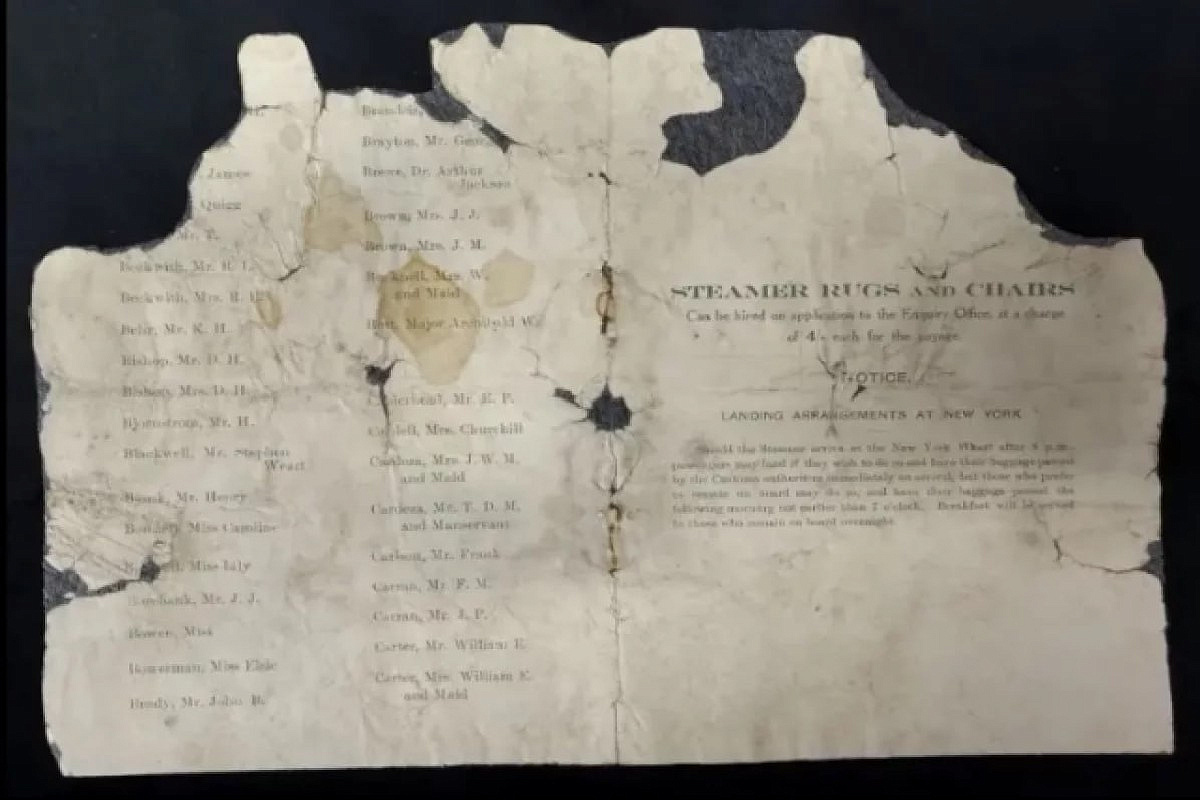 James
Quigg
Mr. T.
Beckwith, Mr. R. L.
Beckwith, Mrs. R. L.
Behr, Mr. K. H.
Bishop, Mr. D. H.
Bishop, Mrs. D. H.
Bjornstrom, Mr. H.
Blackwell, Mr. Stephen
Weart
Mr. Henry
Miss Caroline
Miss Lily
Mr. J. J.
Bowen, Miss
Bowerman, Miss Elsie
Brady, Mr. John B.
Brandeis,
Brayton, Mr. Geor
Brewe, Dr. Arthur
Jackson
Brown, Mrs. J. J.
Brown, Mrs. J. M.
Bucknell, Mrs. W.
and Maid
Butt, Major Archibald W.
Calderhead, Mr. E. P.
Candell, Mrs. Churchill
Cardeza, Mrs. J. W. M.
and Maid
Cardeza, Mr. T. D. M.
and Manservant
Carlson, Mr. Frank
Carran, Mr. F. M.
Carran, Mr. J. P.
Carter, Mr. William E.
Carter, Mrs. William E.
and Maid
STEAMER RUGS AND CHAIRS
Can be hired on application to the Enquiry Office, at a charge
of 4/- each for the voyage.
NOTICE.
LANDING ARRANGEMENTS AT NEW YORK
Should the Steamer arrive at the New York Wharf after 8 p.m.
passengers may land if they wish to do so and have their baggage passed
by the Customs authorities immediately on arrival, but those who prefer
to remain on board may do so, and have their baggage passed the
following morning not earlier than 7 o'clock. Breakfast will be served
to those who remain on board overnight.